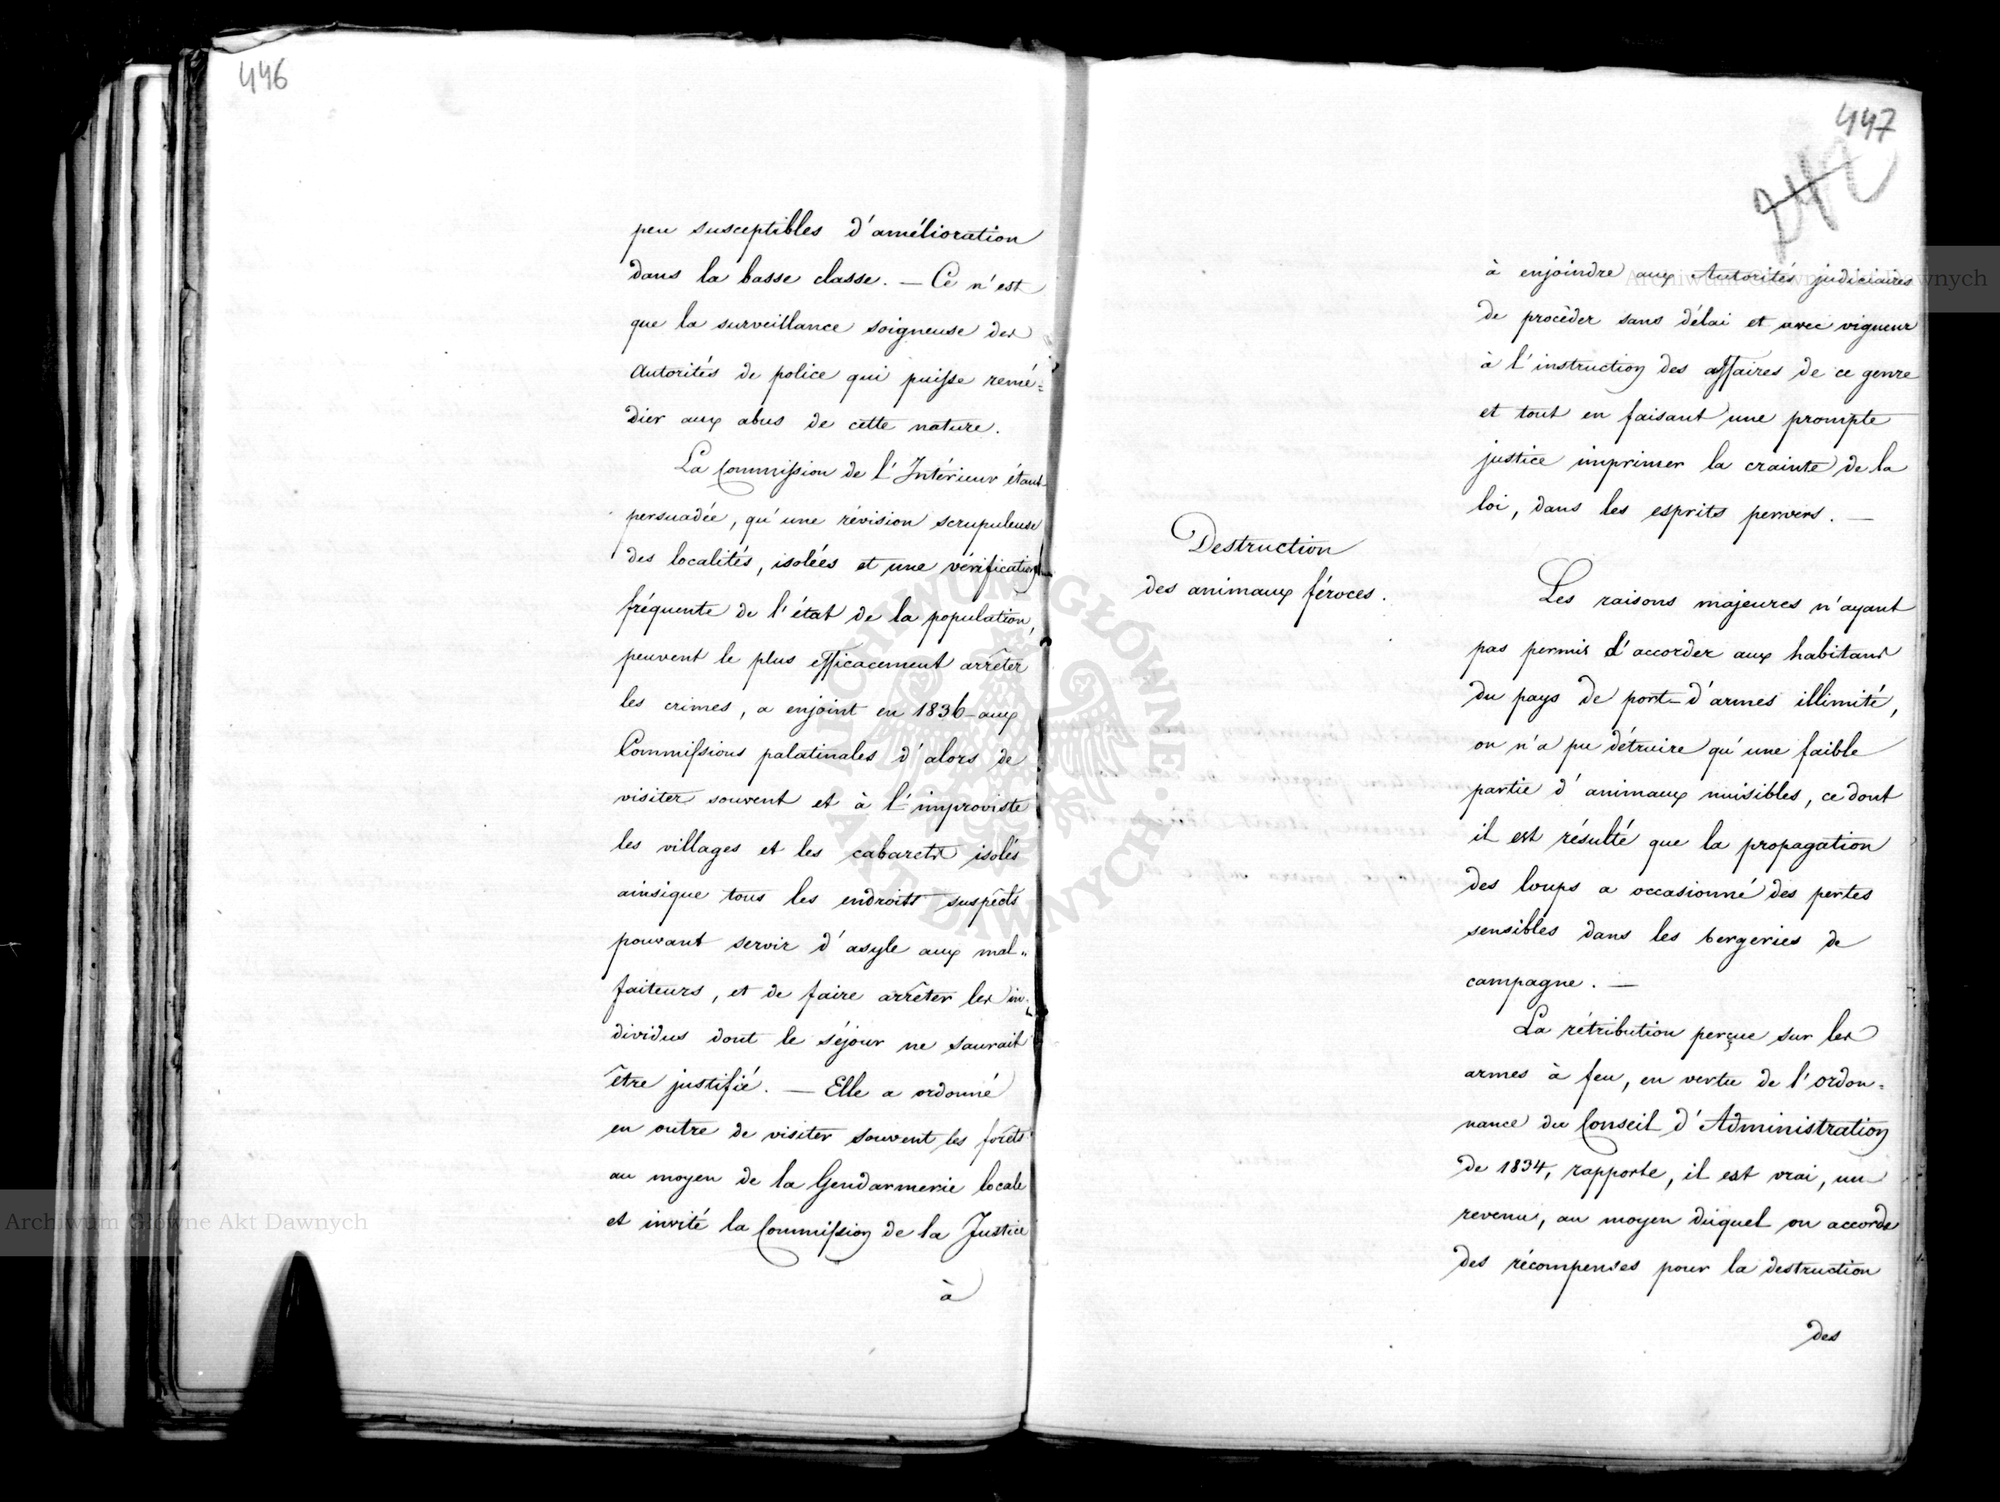 446
peu susceptibles d'amélioration
dans la basse classe. — Ce n'est
que la surveillance soigneuse des
Autorités de police qui puisse remé=
dier aux abus de cette nature.
La Commission de l'Intérieur étant
persuadée, qu'une révision scrupuleuse
des localités, isolées et une vérification
fréquente de l'état de la population,
peuvent le plus efficacement arrêter
les crimes, a enjoint en 1836 aux
Commissions palatinales d'alors de
visiter souvent et à l'improviste
les villages et les cabarets isolés
ainsique tous les endroits suspects
pouvant servir d'asyle aux mal„
faiteurs, et de faire arrêter les in„
dividus dont le séjour ne saurait
être justifié. — Elle a ordonné
en outre de visiter souvent les forêts
au moyen de la Gendarmerie locale
et invité la Commission de la Justice
à
447
242
à enjoindre aux Autorités judiciaires
de procéder sans délai et avec vigueur
à l'instruction des affaires de ce genre
et tout en faisant une prompte
justice imprimer la crainte de la
loi, dans les esprits pervers. —
Destruction
des animaux féroces.
Les raisons majeures n'ayant
pas permis d'accorder aux habitans
du pays de port-d'armes illimité,
on n'a pu détruire qu'une faible
partie d'animaux nuisibles, ce dont
il est résulté que la propagation
des loups a occasionné des pertes
sensibles dans les bergeries de
campagne. —
La rétribution perçue sur les
armes à feu, en vertu de l'ordon=
nance du Conseil d'Administration
de 1834, rapporte, il est vrai, un
revenu, au moyen duquel on accorde
des récompenses pour la destruction
des
Archiwum Główne Akt Dawnych
Archiwum Główne Akt Dawnych
ARCHIWUM GŁÓWNE · AKT DAWNYCH ·